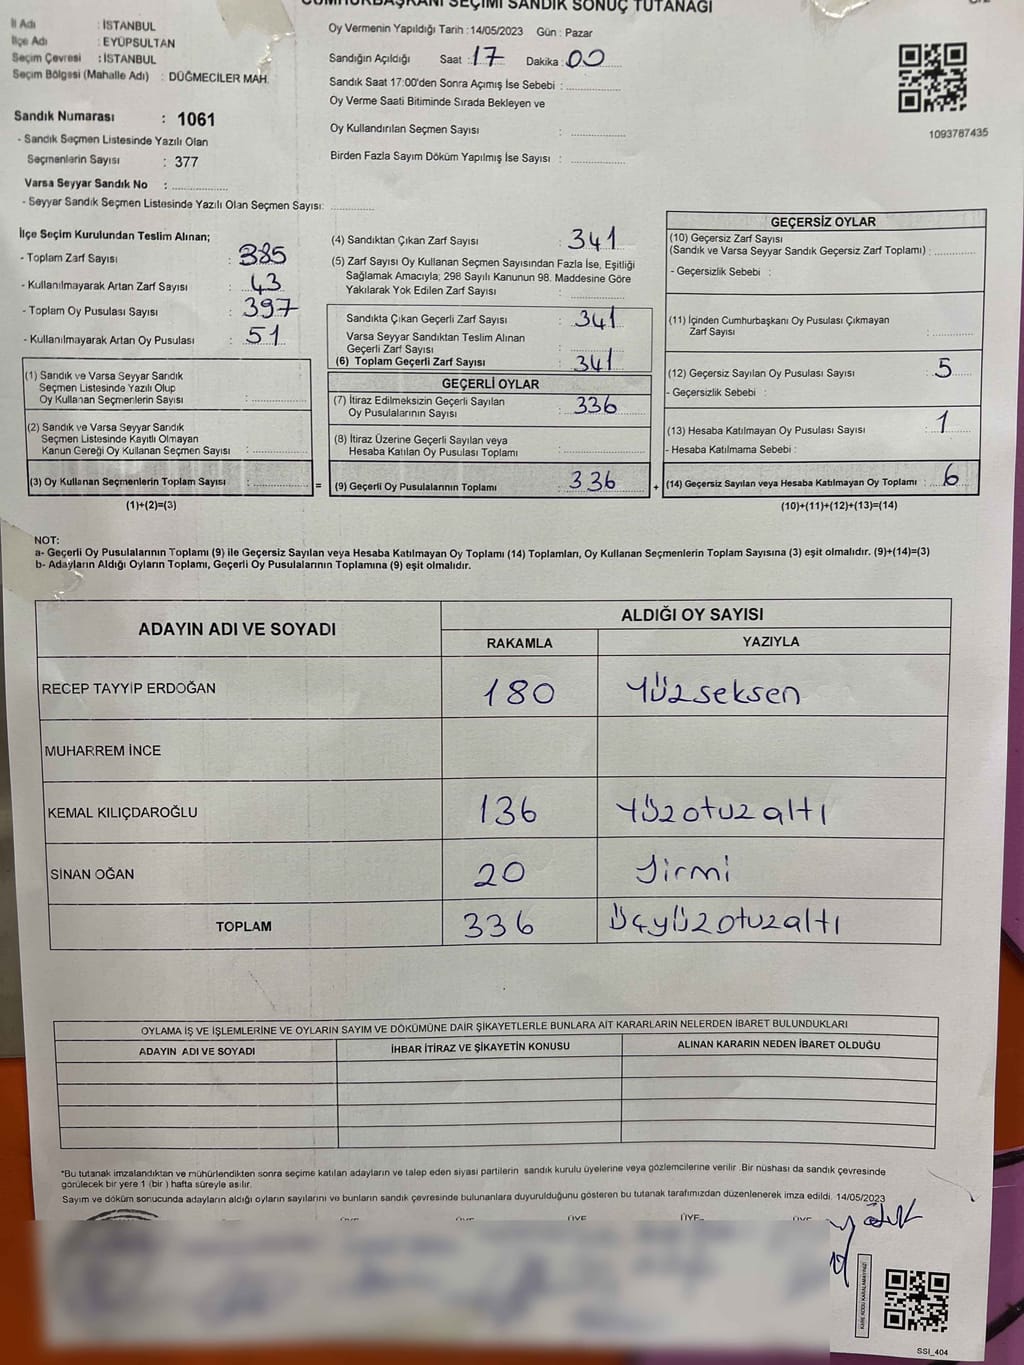 CUMHURBAŞKANI SEÇİMİ SANDIK SONUÇ TUTANAĞI
İl Adı : İSTANBUL
İlçe Adı : EYÜPSULTAN
Seçim Çevresi : İSTANBUL
Seçim Bölgesi (Mahalle Adı) : DÜĞMECİLER MAH.
Sandık Numarası : 1061
- Sandık Seçmen Listesinde Yazılı Olan
Seçmenlerin Sayısı : 377
Varsa Seyyar Sandık No :
- Seyyar Sandık Seçmen Listesinde Yazılı Olan Seçmen Sayısı:
Oy Vermenin Yapıldığı Tarih : 14/05/2023 Gün : Pazar
Sandığın Açıldığı Saat : 17 Dakika : 00
Sandık Saat 17:00'den Sonra Açımış İse Sebebi :
Oy Verme Saati Bitiminde Sırada Bekleyen ve
Oy Kullandırılan Seçmen Sayısı :
Birden Fazla Sayım Döküm Yapılmış İse Sayısı :
1093787435
İlçe Seçim Kurulundan Teslim Alınan;
- Toplam Zarf Sayısı : 385
- Kullanılmayarak Artan Zarf Sayısı : 43
- Toplam Oy Pusulası Sayısı : 397
- Kullanılmayarak Artan Oy Pusulası : 51
(1) Sandık ve Varsa Seyyar Sandık
Seçmen Listesinde Yazılı Olup
Oy Kullanan Seçmenlerin Sayısı :
(2) Sandık ve Varsa Seyyar Sandık
Seçmen Listesinde Kayıtlı Olmayan
Kanun Gereği Oy Kullanan Seçmen Sayısı :
(3) Oy Kullanan Seçmenlerin Toplam Sayısı :
(1)+(2)=(3)
(4) Sandıktan Çıkan Zarf Sayısı : 341
(5) Zarf Sayısı Oy Kullanan Seçmen Sayısından Fazla İse, Eşitliği
Sağlamak Amacıyla; 298 Sayılı Kanunun 98. Maddesine Göre
Yakılarak Yok Edilen Zarf Sayısı :
Sandıkta Çıkan Geçerli Zarf Sayısı : 341
Varsa Seyyar Sandıktan Teslim Alınan
Geçerli Zarf Sayısı :
(6) Toplam Geçerli Zarf Sayısı : 341
GEÇERLİ OYLAR
(7) İtiraz Edilmeksizin Geçerli Sayılan
Oy Pusulalarının Sayısı : 336
(8) İtiraz Üzerine Geçerli Sayılan veya
Hesaba Katılan Oy Pusulası Toplamı :
= (9) Geçerli Oy Pusulalarının Toplamı : 336
GEÇERSİZ OYLAR
(10) Geçersiz Zarf Sayısı
(Sandık ve Varsa Seyyar Sandık Geçersiz Zarf Toplamı) :
- Geçersizlik Sebebi :
(11) İçinden Cumhurbaşkanı Oy Pusulası Çıkmayan
Zarf Sayısı :
(12) Geçersiz Sayılan Oy Pusulası Sayısı : 5
- Geçersizlik Sebebi :
(13) Hesaba Katılmayan Oy Pusulası Sayısı : 1
- Hesaba Katılmama Sebebi :
+ (14) Geçersiz Sayılan veya Hesaba Katılmayan Oy Toplamı : 6
(10)+(11)+(12)+(13)=(14)
NOT:
a- Geçerli Oy Pusulalarının Toplamı (9) ile Geçersiz Sayılan veya Hesaba Katılmayan Oy Toplamı (14) Toplamları, Oy Kullanan Seçmenlerin Toplam Sayısına (3) eşit olmalıdır. (9)+(14)=(3)
b- Adayların Aldığı Oyların Toplamı, Geçerli Oy Pusulalarının Toplamına (9) eşit olmalıdır.
ADAYIN ADI VE SOYADI ALDIĞI OY SAYISI
RAKAMLA YAZIYLA
RECEP TAYYİP ERDOĞAN 180 Yüzseksen
MUHARREM İNCE
KEMAL KILIÇDAROĞLU 136 Yüzotuzaltı
SİNAN OĞAN 20 Yirmi
TOPLAM 336 Üçyüzotuzaltı
OYLAMA İŞ VE İŞLEMLERİNE VE OYLARIN SAYIM VE DÖKÜMÜNE DAİR ŞİKAYETLERLE BUNLARA AİT KARARLARIN NELERDEN İBARET BULUNDUKLARI
ADAYIN ADI VE SOYADI İHBAR İTİRAZ VE ŞİKAYETİN KONUSU ALINAN KARARIN NEDEN İBARET OLDUĞU
*Bu tutanak imzalandıktan ve mühürlendikten sonra seçime katılan adayların ve talep eden siyasi partilerin sandık kurulu üyelerine veya gözlemcilerine verilir .Bir nüshası da sandık çevresinde
görülecek bir yere 1 (bir ) hafta süreyle asılır.
Sayım ve döküm sonucunda adayların aldığı oyların sayılarını ve bunların sandık çevresinde bulunanlara duyurulduğunu gösteren bu tutanak tarafımızdan düzenlenerek imza edildi. 14/05/2023
ÜYE ÜYE ÜYE ÜYE ÜYE
KARE KODU KARALAMAYINIZ!
SSI_404